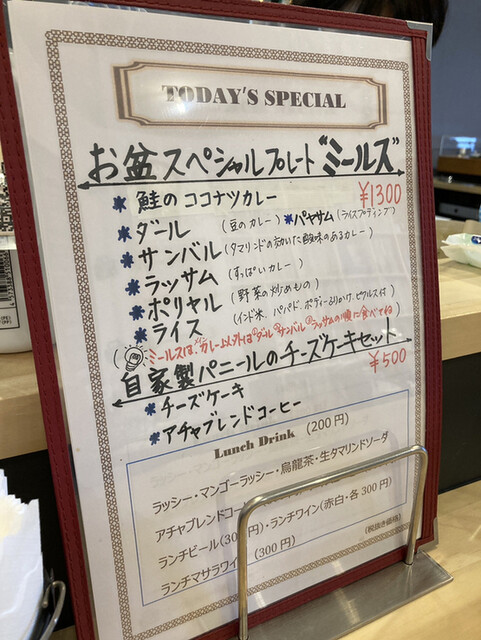 TODAY'S SPECIAL
お盆スペシャルプレート"ミールズ"
* 鮭のココナツカレー ¥1300
* ダール (豆のカレー) * パヤサム (ライスプディング)
* サンバル (タマリンドの効いた酸味のあるカレー)
* ラッサム (すっぱいカレー)
* ポリヤル (野菜の炒めもの)
* ライス (インド米、パパド、ポディーふりかけ、ピクルス付)
ミールズは、カレー以外は①ダール②サンバル③ラッサムの順に食べてね
自家製パニールのチーズケーキセット
* チーズケーキ ¥500
* アチャブレンドコーヒー
Lunch Drink (200円)
ラッシー・マンゴーラッシー・烏龍茶・生タマリンドソーダ
アチャブレンドコー
ランチビール(300円)・ランチワイン(赤白・各300円)
ランチマサラワイ (300円) (税抜き価格)